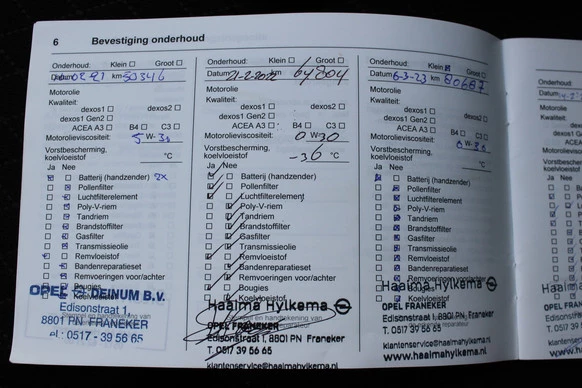 6 Bevestiging onderhoud
Onderhoud: Klein Groot
Datum km 50346
Motorolie
Kwaliteit:
dexos1 dexos2
dexos1 Gen2
ACEA A3 B4 C3
Motorolieviscositeit: 5 W- 30
Vorstbescherming,
koelvloeistof °C
Ja Nee
Batterij (handzender) 2x
Pollenfilter
Luchtfilterelement
Poly-V-riem
Tandriem
Brandstoffilter
Gasfilter
Transmissieolie
Remvloeistof
Bandenreparatieset
Remvoeringen voor/achter
Bougies
Koelvloeistof
OPEL DEINUM B.V.
Edisonstraat 1
8801 PN FRANEKER
tel : 0517 - 39 56 65
Onderhoud: Klein Groot
Datum 21-2-2022 km 64804
Motorolie
Kwaliteit:
dexos1 dexos2
dexos1 Gen2
ACEA A3 B4 C3
Motorolieviscositeit: 0 W- 30
Vorstbescherming,
koelvloeistof -36 °C
Ja Nee
Batterij (handzender)
Pollenfilter
Luchtfilterelement
Poly-V-riem
Tandriem
Brandstoffilter
Gasfilter
Transmissieolie
Remvloeistof
Bandenreparatieset
Remvoeringen voor/achter
Bougies
Koelvloeistof
Haaima Hylkema
OPEL FRANEKER
Edisonstraat 1, 8801 PN Franeker
T. 0517 39 56 65
klantenservice@haaimahylkema.nl
Onderhoud: Klein Groot
Datum 6-3-23 km 80687
Motorolie
Kwaliteit:
dexos1 dexos2
dexos1 Gen2
ACEA A3 B4 C3
Motorolieviscositeit: 0 W- 30
Vorstbescherming,
koelvloeistof °C
Ja Nee
Batterij (handzender)
Pollenfilter
Luchtfilterelement
Poly-V-riem
Tandriem
Brandstoffilter
Gasfilter
Transmissieolie
Remvloeistof
Bandenreparatieset
Remvoeringen voor/achter
Bougies
Koelvloeistof
Haaima Hylkema
OPEL FRANEKER
Edisonstraat 1, 8801 PN Franeker
T. 0517 39 56 65
klantenservice@haaimahylkema.nl
www.haaimahylkema.nl
Onderhoud:
Datum
Motorolie
Kwaliteit:
Ja Nee